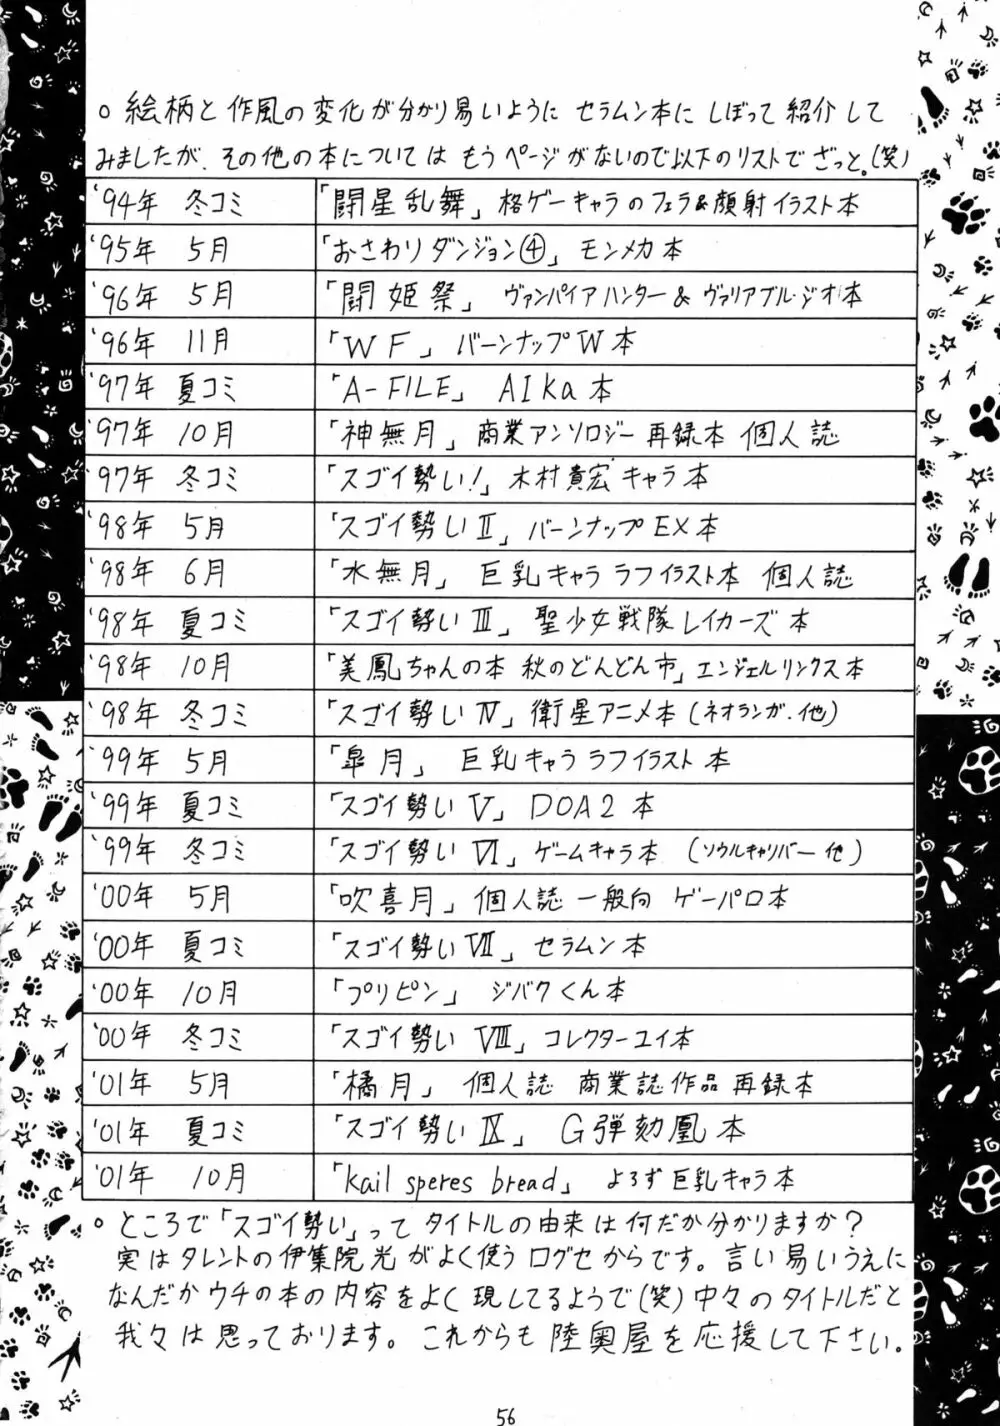 ○ 絵柄と作風の変化が分かり易いように セラムン本に しぼって紹介して
みましたが、その他の本については もうページがないので以下のリストで ざっと。(笑)
'94年 冬コミ 「闘星乱舞」格ゲーキャラのフェラ&顔射イラスト本
'95年 5月 「おさわりダンジョン④」モンメカ本
'96年 5月 「闘姫祭」 ヴァンパイアハンター & ヴァリアブル・ジオ本
'96年 11月 「WF」 バーンナップW本
'97年 夏コミ 「A-FILE」 AIKa本
'97年 10月 「神無月」 商業アンソロジー再録本 個人誌
'97年 冬コミ 「スゴイ勢い!」木村貴宏キャラ本
'98年 5月 「スゴイ勢いⅡ」バーンナップEX本
'98年 6月 「水無月」 巨乳キャララフイラスト本 個人誌
'98年 夏コミ 「スゴイ勢いⅢ」聖少女戦隊レイカーズ本
'98年 10月 「美鳳ちゃんの本 秋のどんどん市」エンジェルリンクス本
'98年 冬コミ 「スゴイ勢いⅣ」衛星アニメ本(ネオランガ.他)
'99年 5月 「皐月」 巨乳キャララフイラスト本
'99年 夏コミ 「スゴイ勢いⅤ」DOA2本
'99年 冬コミ 「スゴイ勢いⅥ」ゲームキャラ本 (ソウルキャリバー他)
'00年 5月 「吹喜月」個人誌 一般向 ゲーパロ本
'00年 夏コミ 「スゴイ勢いⅦ」セラムン本
'00年 10月 「プリピン」 ジバクくん本
'00年 冬コミ 「スゴイ勢いⅧ」コレクターユイ本
'01年 5月 「橘月」 個人誌 商業誌作品再録本
'01年 夏コミ 「スゴイ勢いⅨ」 G弾劾凰本
'01年 10月 「kail speres bread」 よろず巨乳キャラ本
○ ところで「スゴイ勢い」って タイトルの由来は何だか分かりますか?
実はタレントの伊集院光がよく使うログセからです。言い易いうえに
なんだかウチの本の内容をよく現してるようで(笑)中々のタイトルだと
我々は思っております。これからも陸奥屋を応援して下さい。
56